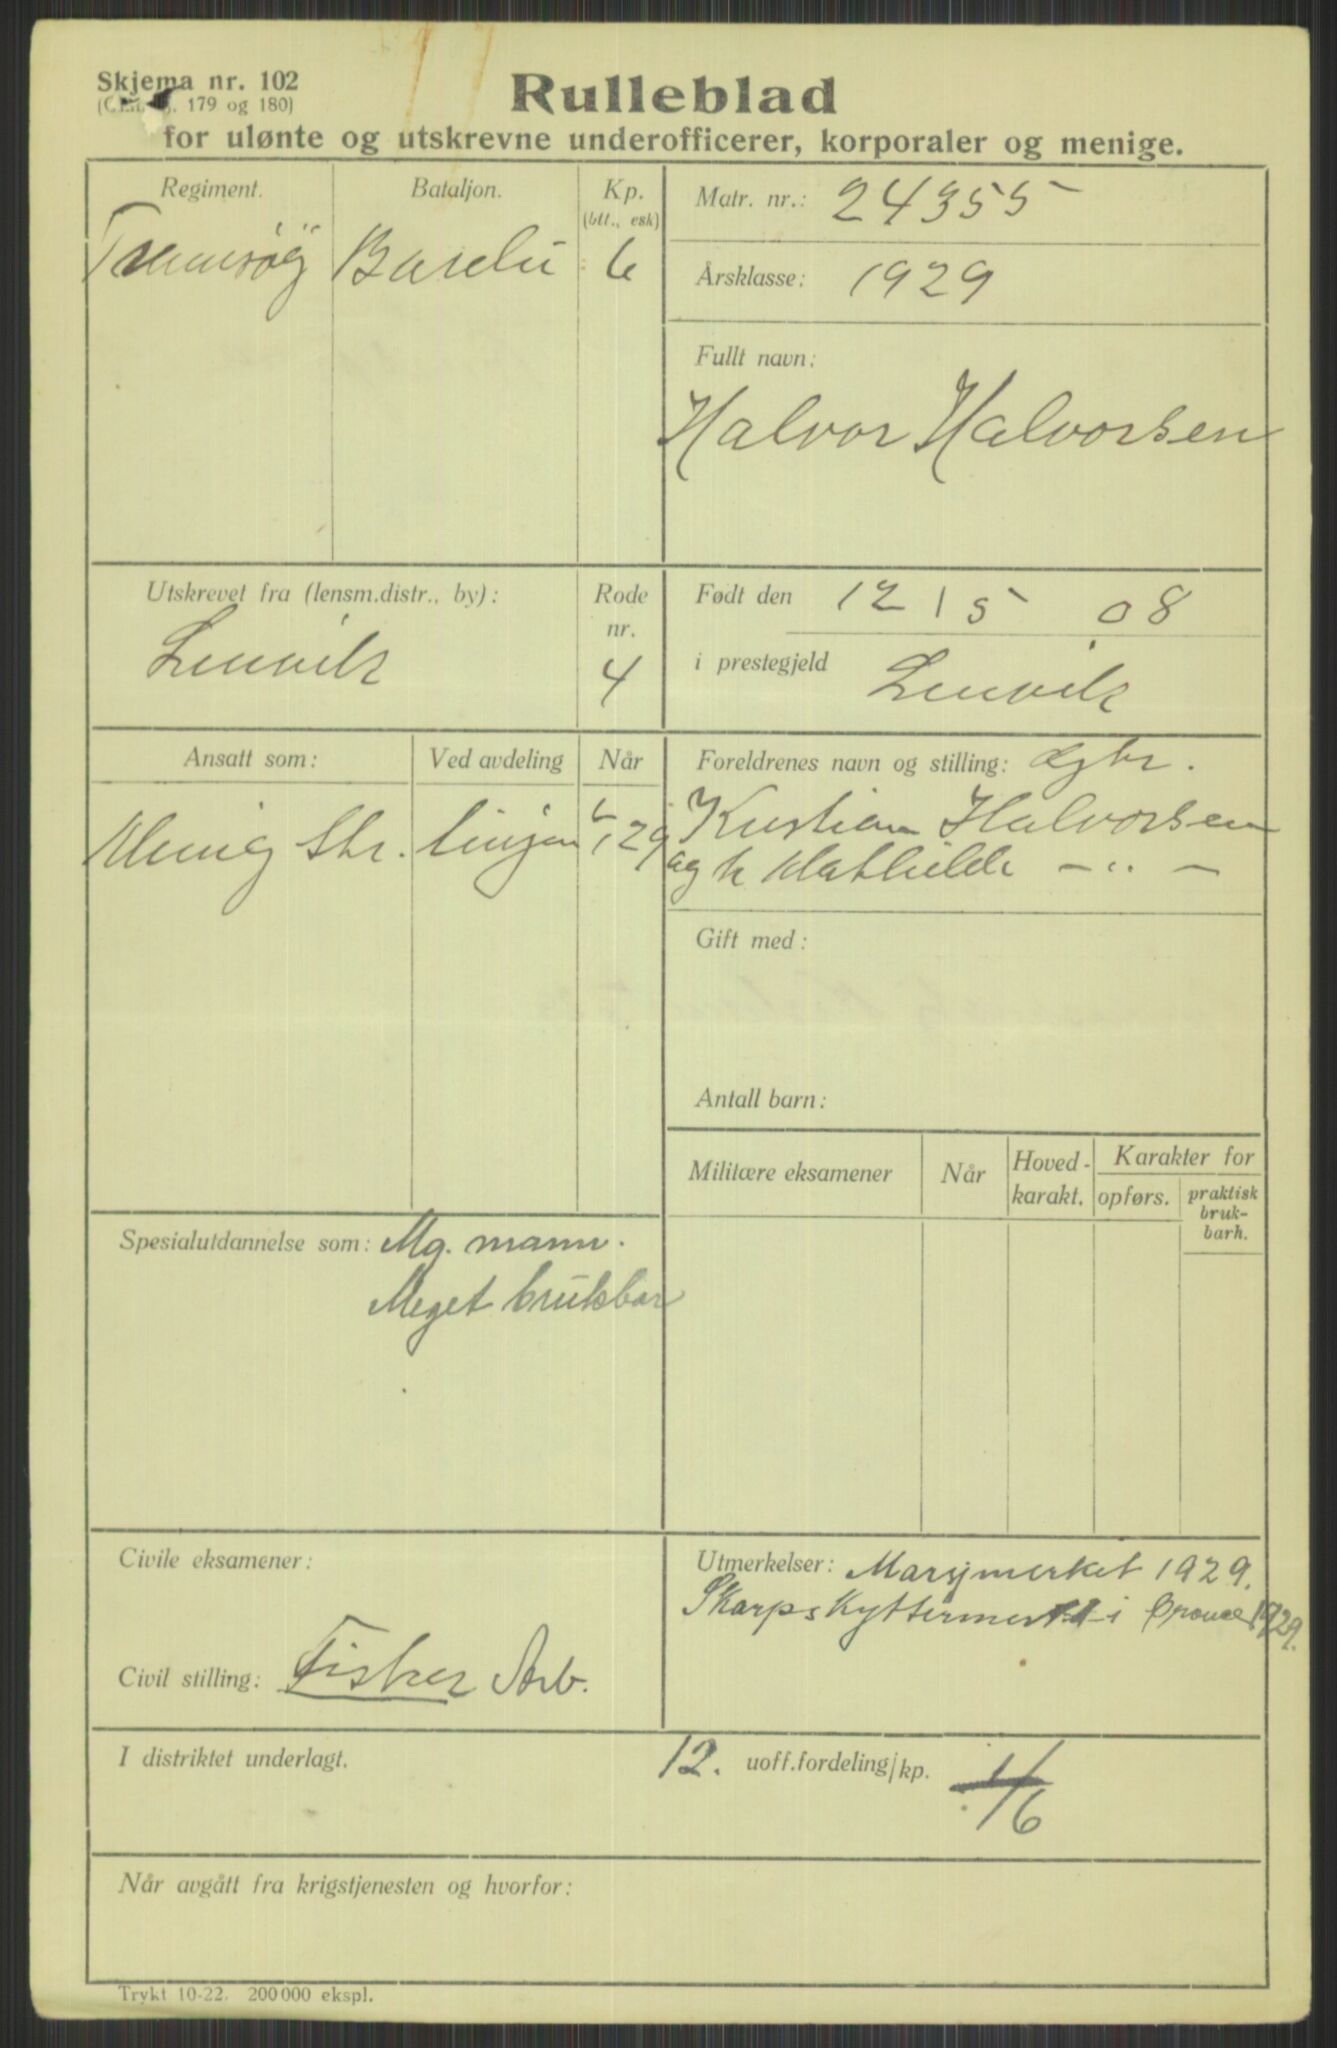 Skjema nr. 102
179 og 180)
Rulleblad
for ulønte og utskrevne underofficerer, korporaler og menige.
Regiment.
Bataljon.
Kp.
(btt., esk)
6
Matr. nr.: 24355
Årsklasse: 1929
Fullt navn:
Halvor Halvorsen
Utskrevet fra (lensm.distr., by):
Lenvik
Rode
nr.
4
Født den 12 / 5 08
i prestegjeld Lenvik
Ansatt som:
Ved avdeling
Når
Menig Str. linjen 29
Foreldrenes navn og stilling: Gbr.
Kristian Halvorsen
og h Mathilde — „ —
Gift med:
Antall barn:
Militære eksamener
Når
Hoved-
karakt.
Karakter for
opførs.
praktisk
bruk-
barh.
Spesialutdannelse som: Mg. mann.
Meget brukbar
Civile eksamener:
Civil stilling: Fisker Arb.
Utmerkelser: Marsjmerket 1929.
Skarpskyttermerket i bronce 1929.
I distriktet underlagt.
12. uoff.fordeling/kp. 1/6
Når avgått fra krigstjenesten og hvorfor:
Trykt 10-22. 200 000 ekspl.